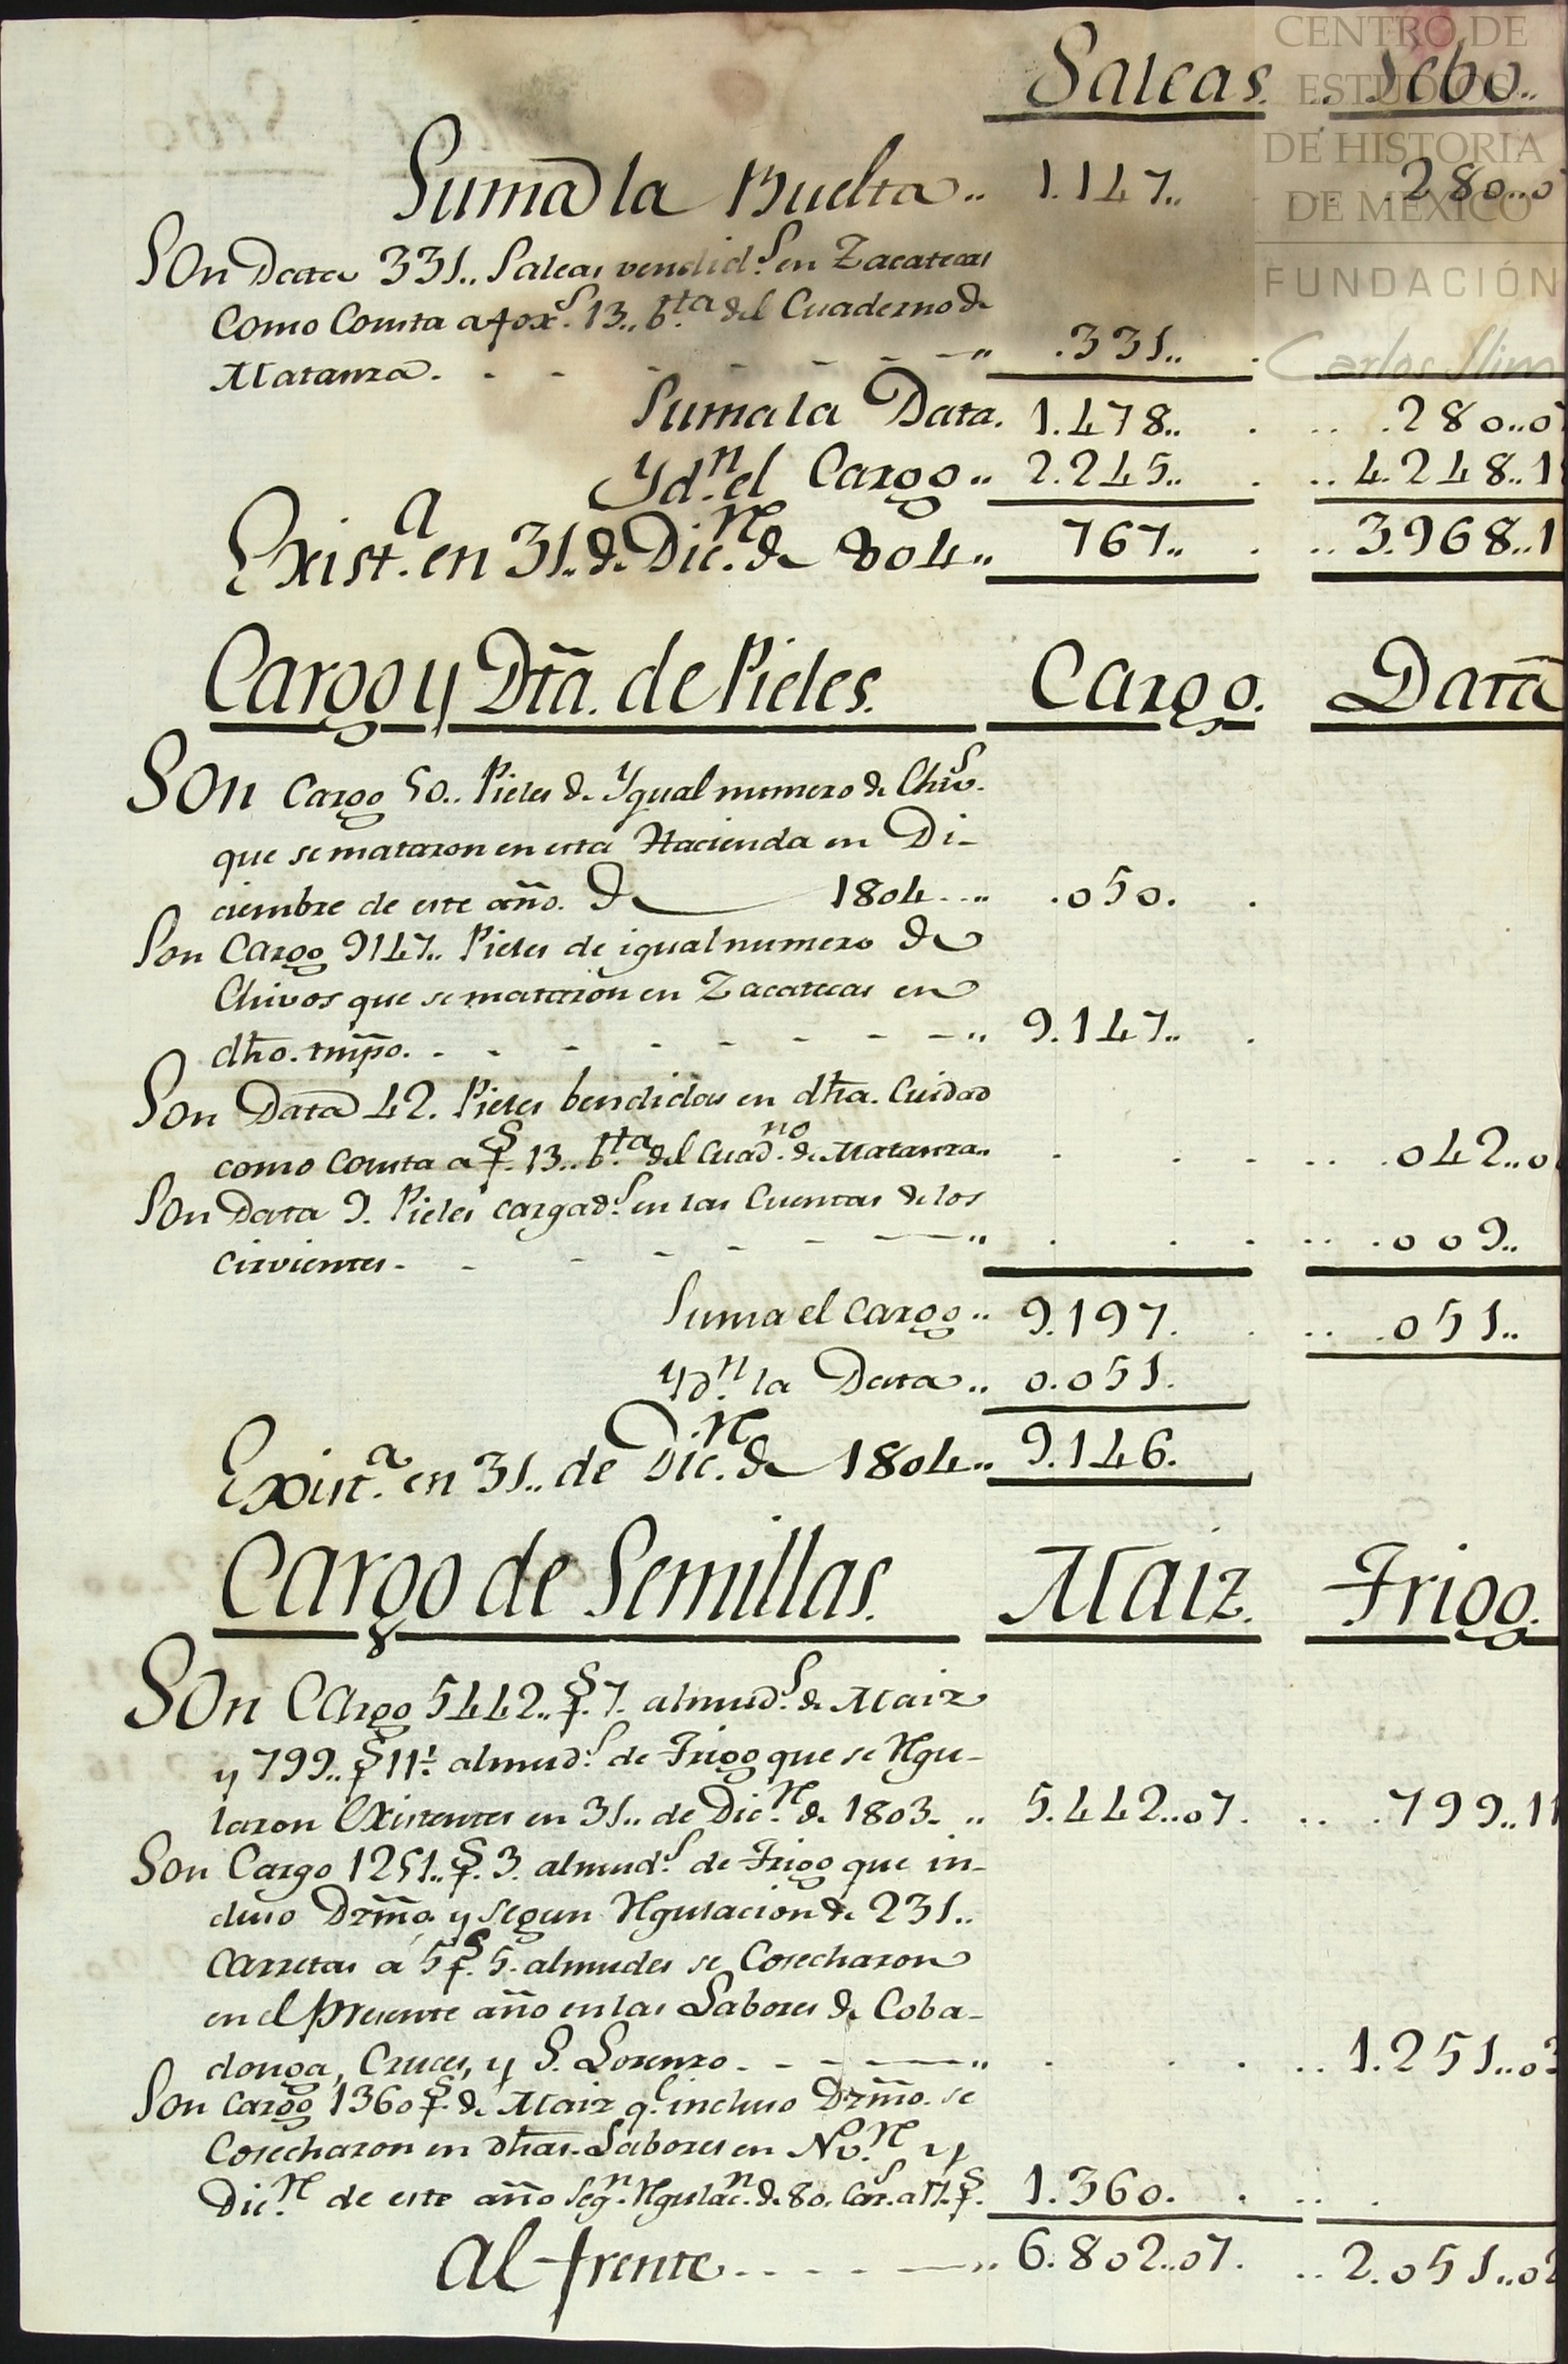 CENTRO DE
ESTUDIOS
DE HISTORIA
DE MÉXICO
FUNDACIÓN
Carlos Slim
Saleas. .. Sebo..
Suma la Buelta.. 1.147.. 280..0
Son Data 331.. Saleas vendid.s en Zacatecas
Como Consta a fox.s 13.. b.ta del Cuaderno de
Matanza. - - - - - - - .. .331.. .
Suma la Data. 1.478.. . .. .280..0
Yd.n el Cargo.. 2.245.. . .. 4.248..1
Exist.a en 31.. de Dic.re de 804.. 767.. . .. 3.968..1
Cargo y Dta. de Pieles. Cargo. Data
Son Cargo 50.. Pieles de Ygual numero de Chiv.s
que se mataron en esta Hacienda en Di-
ciembre de este año. de 1804... .050. .
Son Cargo 9147.. Pieles de igual numero de
Chivos que se mataron en Zacatecas en
dho. tmpo. - - - - - - - - .. 9.147.. .
Son Data 42. Pieles bendidas en dha. Cuidad
como consta a f.s 13.. b.ta del Cuad.no de Matanza.. . . . .. .042..0
Son Data 9. Pieles cargad.s en las Cuentas de los
cirvientes - - - - - - .. . . . .. .009..
Suma el cargo.. 9.197. . .. .051..
Yd.n la Data.. 0.051.
Exist.a en 31.. de Dic.re de 1804.. 9.146.
Cargo de Semillas. Maiz. Trigo.
Son Cargo 5442.. f.s 7. almud.s de Maiz
y 799.. f.s 11. almud.s de Trigo que se Rgu-
laron Existentes en 31.. de Dic.re de 1803. .. 5.442..07. .. .799..11
Son Cargo 1251.. f.s 3. almud.s de Trigo que in-
cluso Dzmo. y segun Rgulacion de 231..
carretas a 5 f.s 5. almudes se Cosecharon
en el presente año en las Labores de Coba-
donga, Cruces, y S. Lorenzo. - - - .. . . . .. 1.251..03
Son cargo 1360 f.s de Maiz q.e incluso Dzmo. se
Cosecharon en dhas. Labores en Nv.re y
Dic.re de este año Seg.n Rgulac.n de 80. Car.s a 17. f.s 1.360. . .. .
Al frente. - - - - .. 6.802..07. .. 2.051..02